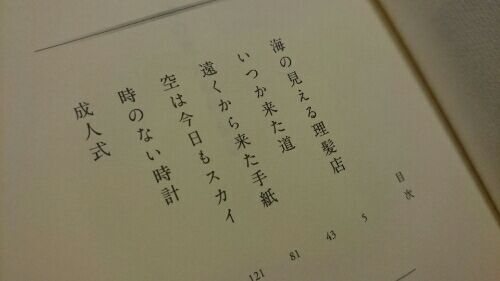 目次
海の見える理髪店 5
いつか来た道 43
遠くから来た手紙 81
空は今日もスカイ 121
時のない時計
成人式